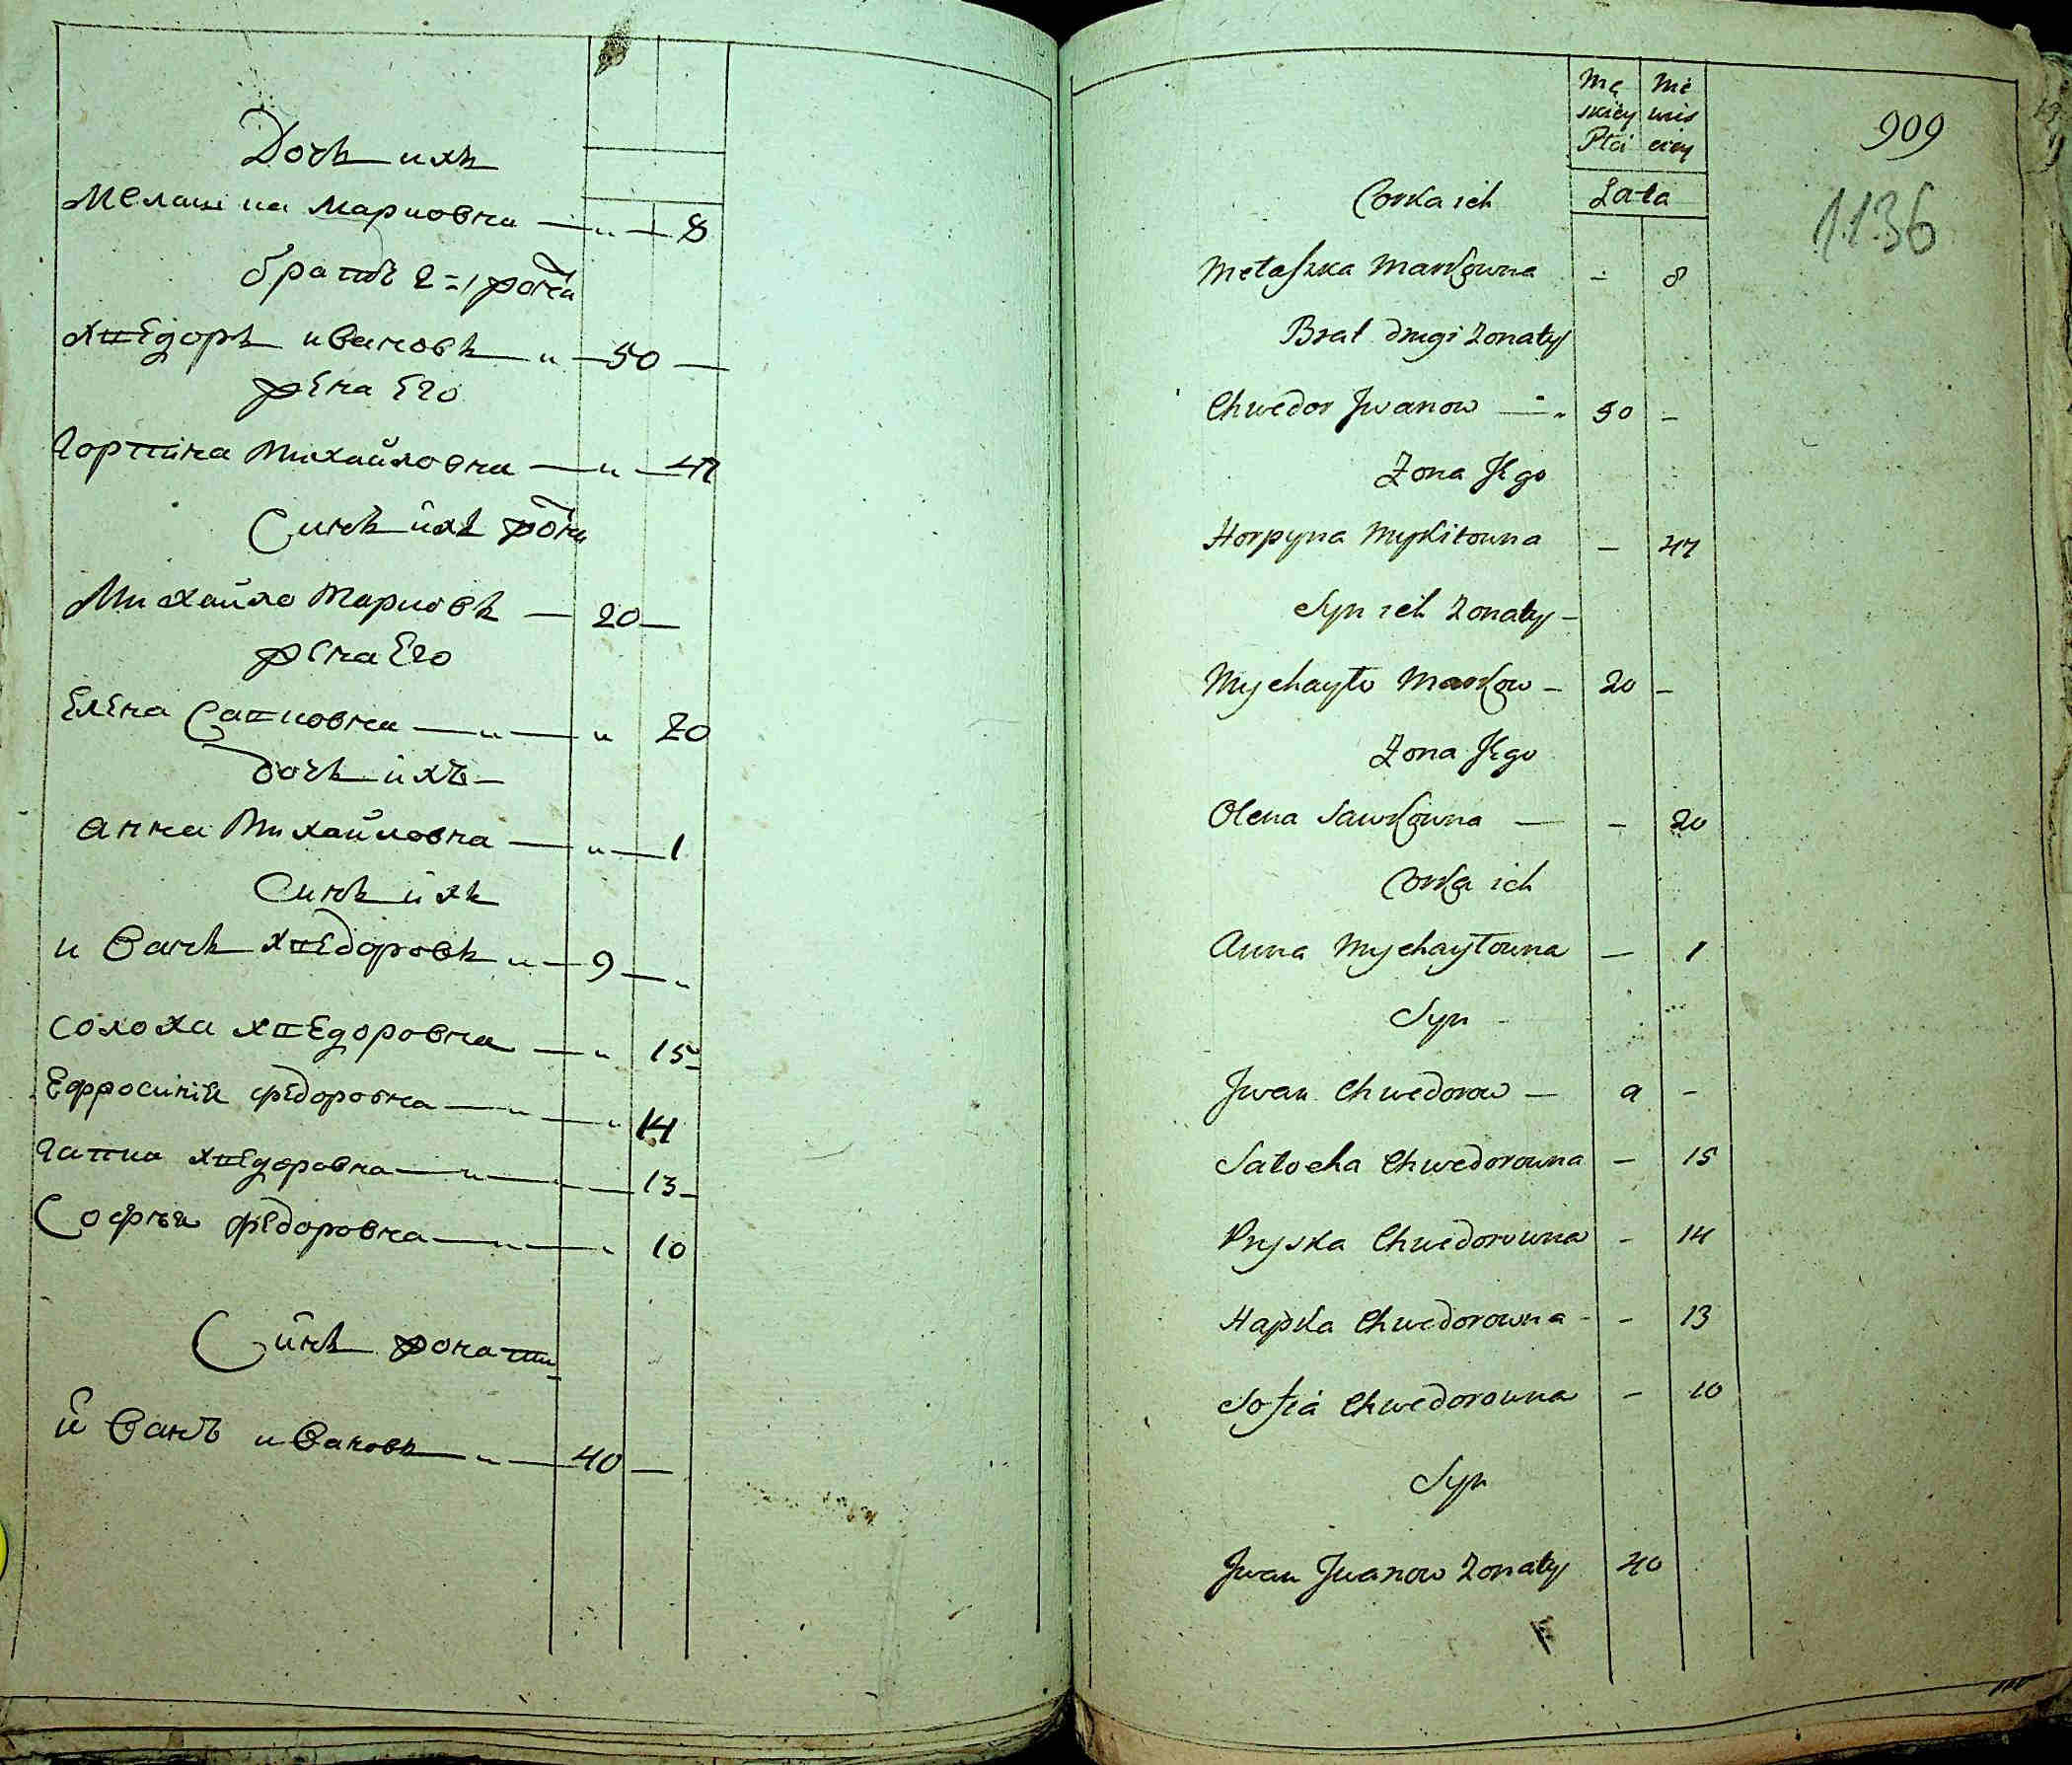 Дочъ ихъ
Мелашка Марковна — 8
братъ 2=й жона
Хведоръ Ивановъ — 50 —
жена Его
Горпина Михайловна — 47
Синъ ихъ жона
Михайло Марковъ — 20 —
жена Его
Елена Савковна — 20
дочъ ихъ —
Анна Михайловна — 1
Синъ ихъ
Иванъ Хведоровъ — 9 —
Солоха Хведоровна — 15
Ефросинія федоровна — 14
Гапка Хведоровна — 13 —
Софья федоровна — 10
Синъ жонати
Иванъ Ивановъ — 40 —
Mę skiey Płci
Lata
909
1136
Corka ich
Mełaszka Markowna — 8
Brat drugi Zonaty
Chwedor Jwanow — 50 —
Zona Jego
Horpyna Mykitowna — 47
Syn ich Zonaty —
Mychayło Markow — 20 —
Zona Jego
Olena Sawkowna — — 20
Corka ich
Anna Mychayłowna — 1
Syn
Jwan Chwedorow — 9 —
Sałocha Chwedorowna — 15
Pryska Chwedorowna — 14
Hapka Chwedorowna — 13
Sofia Chwedorowna — 10
Syn
Jwan Jwanow Zonaty 40